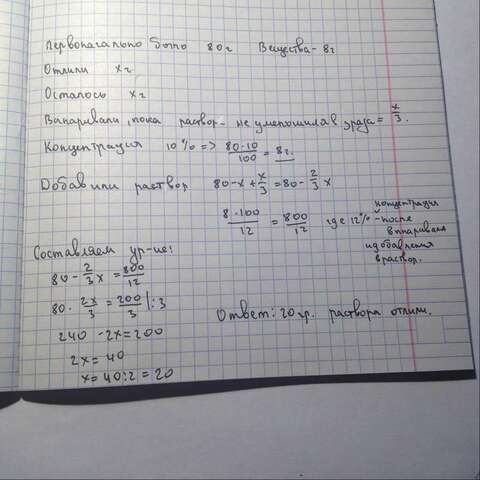 Первоначально было 80 г Вещества - 8 г
Отлили x г
Осталось x г
Выпаривали, пока раствор - не уменьшился в 3 раза = x/3.
Концентрация 10% => 80·10/100 = 8 г.
Добавили раствор 80 - x + x/3 = 80 - 2/3 x
8·100/12 = 800/12 где 12% - концентрация после выпаривания и добавления в раствор.
Составляем ур-ие:
80 - 2/3 x = 800/12
80 · 2x/3 = 200/3 |:3
240 - 2x = 200
2x = 40
x = 40:2 = 20
Ответ: 20 гр. раствора отлили.